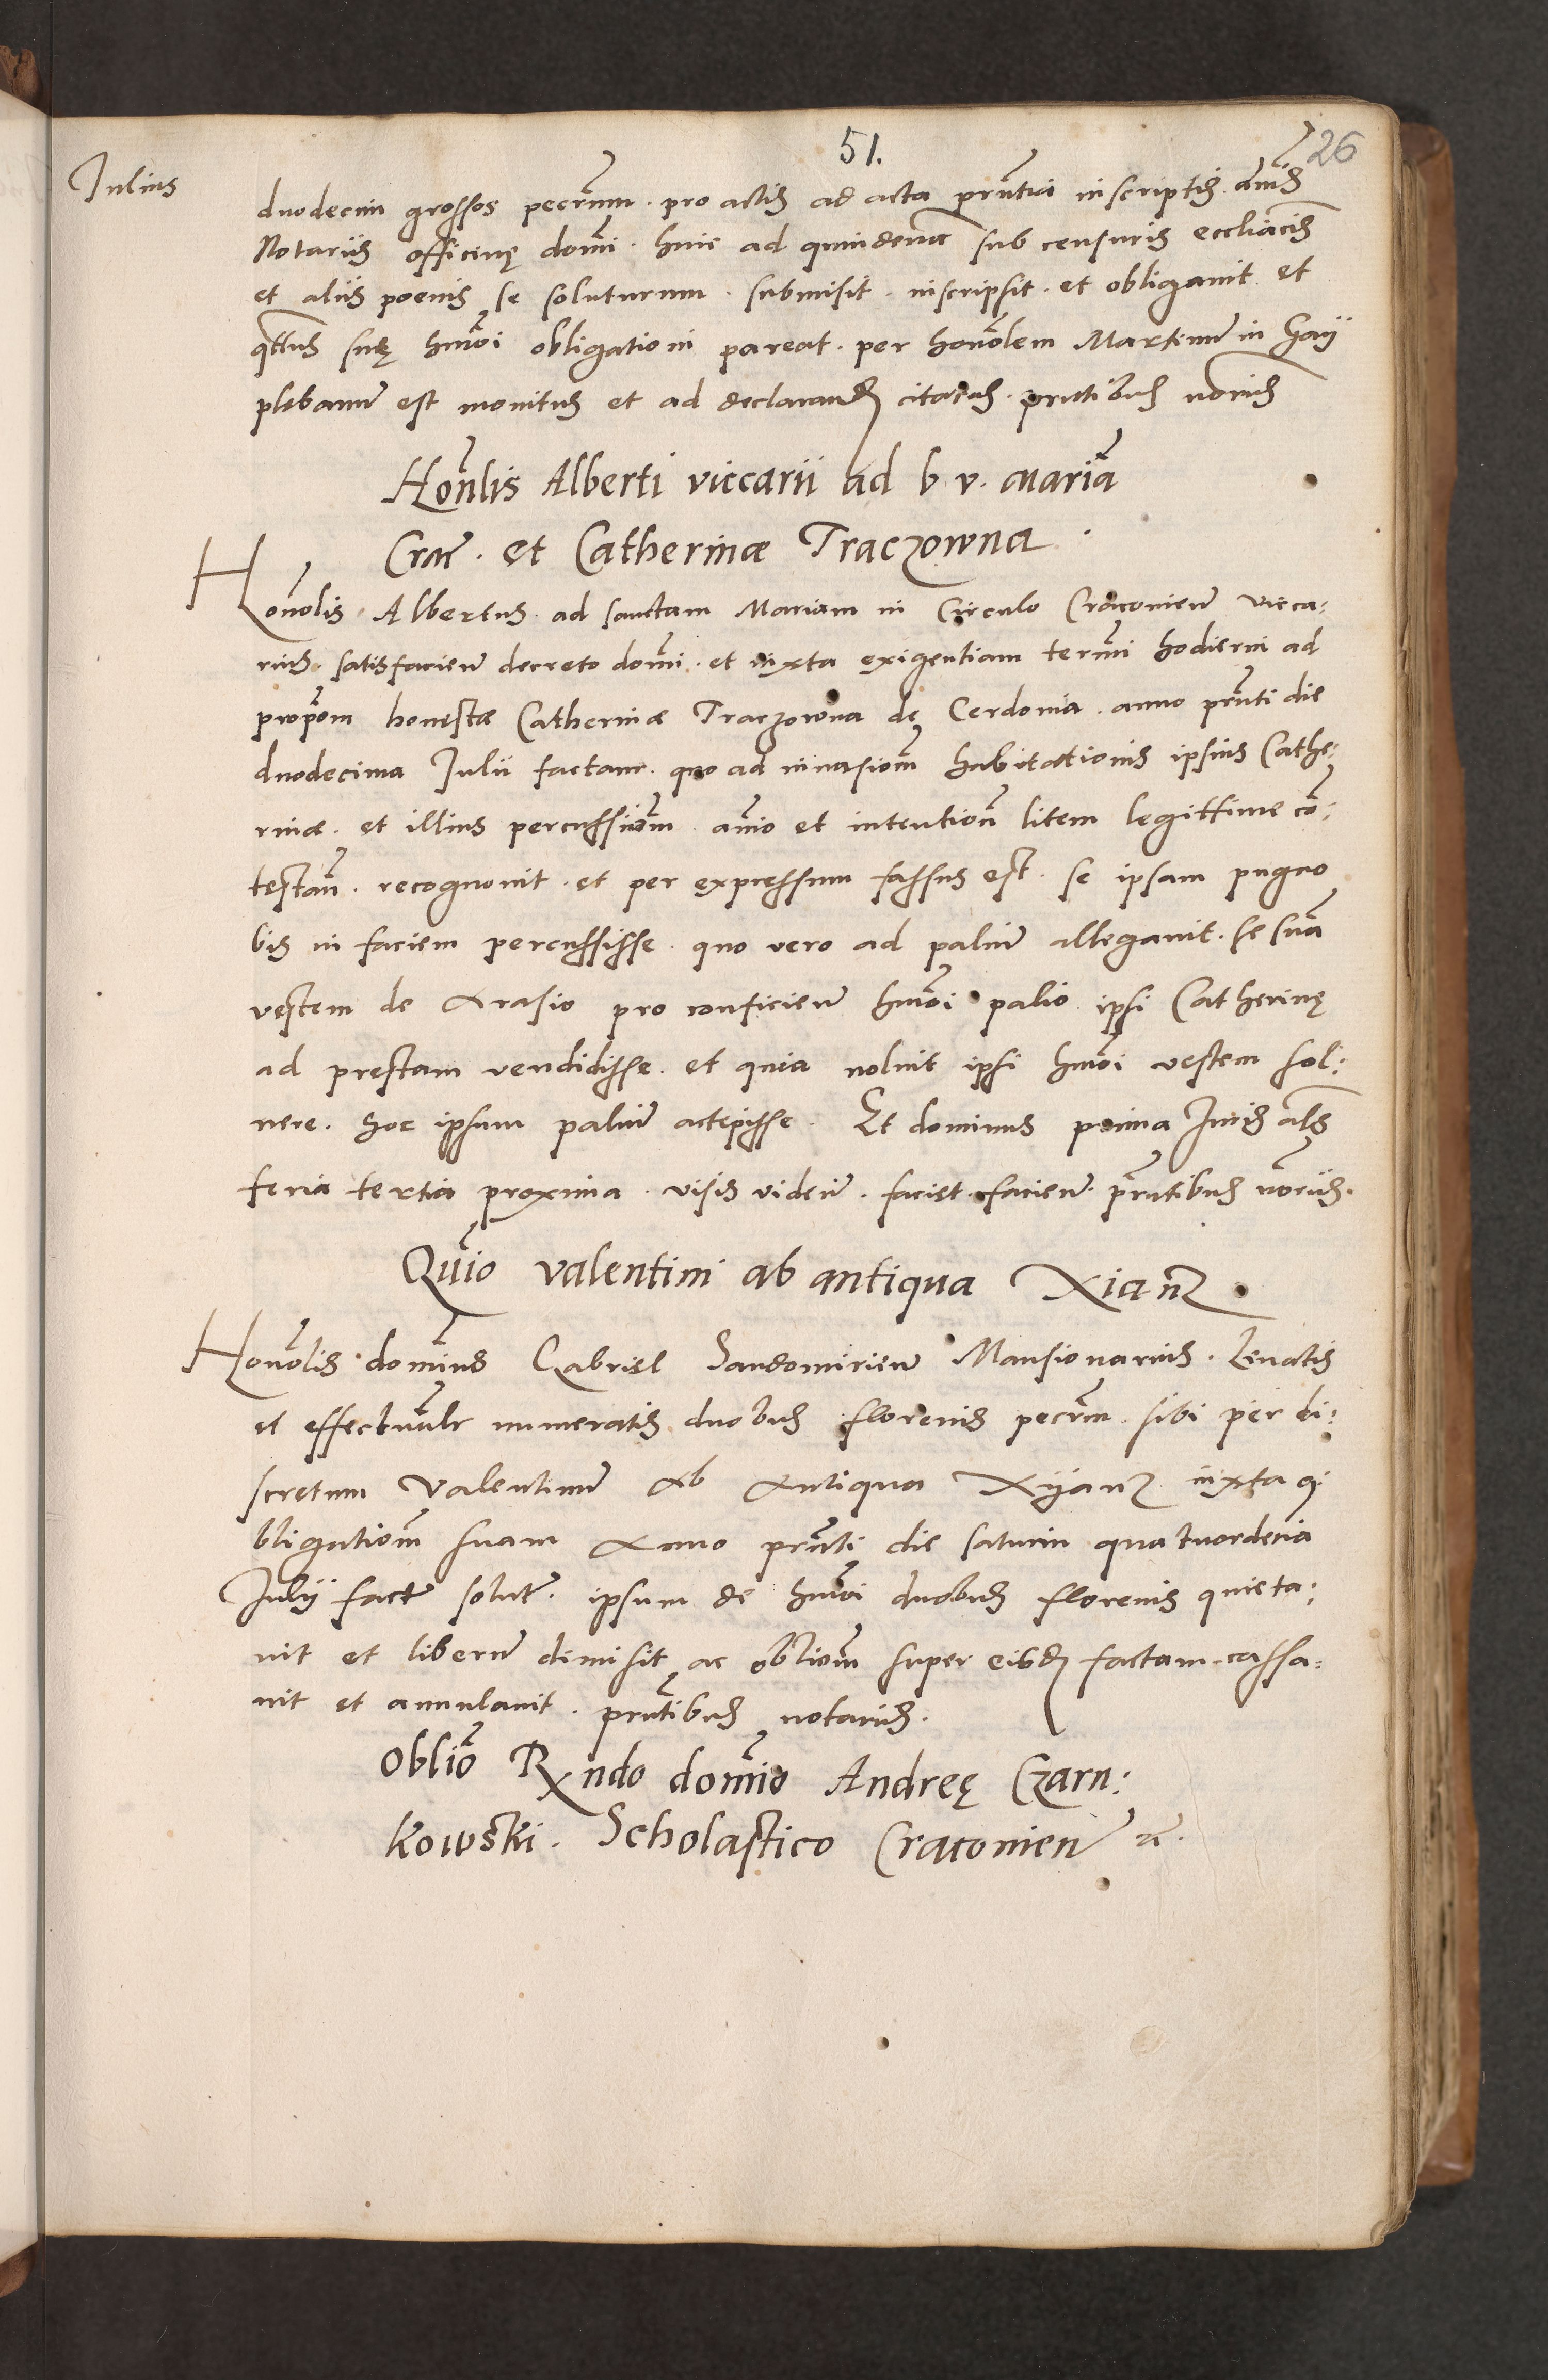 51.
26
Iulius
duodecim grossos pecu̅rum. pro actis ad acta prn̅tia inscriptis. dn̅is
Notariis officinę domi̅. hinc ad quindena̅ sub censuris eccliacis
et aliis poenis se soluturum. submisit. inscripsit. et obligauit et
qt̅tus suę hmo̅i obligationi pareat. per hono̅lem Martinu̅ in Gaÿ
plebanu̅ est monitus et ad declarand citatus. prn̅tibus no̅riis
Hon̅lis Alberti viccarii ad b v. Maria̅
Crac̅. et Catherinæ Traczowna.
Hono̅lis Albertus. ad sanctam Mariam in Circulo Cracovien̅ vicca:
rius. satisfacien̅ decreto domi̅. et iuxta exigentiam termi̅ hodierni ad
propo̅m honestæ Catherinæ Traczowna de Cerdonia. anno prn̅ti die
duodecima Iulii factam. quo ad inuasiom̅ habitationis ipsius Cathe:
rinæ. et illius percussiom̅. ani̅o et intention̅ litem legittime co̅:
testan̅. recognouit. et per expressum fassus est. se ipsam pugno
bis in faciem percussisse. quo vero ad paliu̅ allegauit. se sua̅
vestem de Arasio pro conficien̅ hmo̅i palio ipsi Catherinę
ad prestam vendidisse. et quia noluit ipsi hmo̅i vestem sol:
uere. hoc ipsum paliu̅ accepisse. Et dominus prima Iuris al̅s
feria tertia proxima. visis viden̅. faciet facien̅. prn̅tibus no̅riis.
Qui̅o valentini ab antiqua Xian̅z
Hono̅lis domi̅nus Gabriel Sandomirien̅ Mansionarius. Leuatis
et effectua̅lr numeratis duobus florenis pecu̅m. sibi per di:
scretum Valentinu̅ Ab Antiqua Xÿanz iuxta o:
bligatiom̅ suam Anno prn̅ti die saturni quatuordecia
Iulÿ fact̅ solut̅. ipsum de hmo̅i duobus florenis quieta:
uit et liberu̅ dimisit ac obliom̅ super eisd factam cassa:
uit et annulauit. prn̅tibus notariis.
Oblio̅ Rndo domi̅o Andreę Czarn:
kowski. Scholastico Cracouien̅ &c̅.